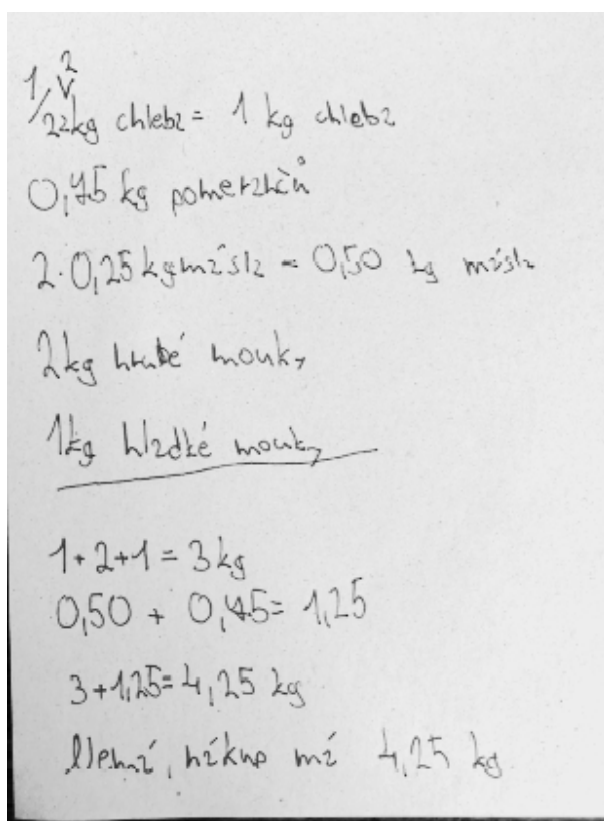 1/2 2kg chleba = 1 kg chleba
0,75 kg pomerančů
2·0,25 kg másla = 0,50 kg másla
2kg hrubé mouky
1kg hladké mouky
1+2+1 = 3 kg
0,50 + 0,75 = 1,25
3+1,25 = 4,25 kg
nákup má 4,25 kg